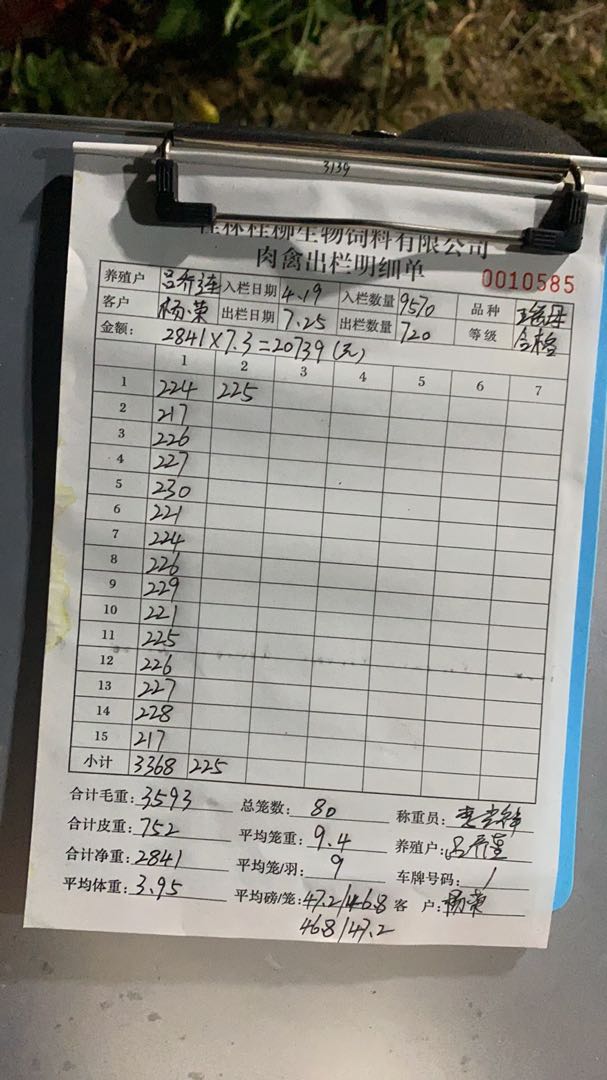 3139
桂林桂柳生物饲料有限公司
肉禽出栏明细单
0010585
养殖户 入栏日期 4.19 入栏数量 9570 品种
客户 杨荣 出栏日期 7.25 出栏数量 720 等级 合格
金额: 2841×7.3=20739(元)
1 2 3 4 5 6 7
1 224 225
2 217
3 226
4 227
5 230
6 221
7 224
8 226
9 229
10 221
11 225
12 226
13 227
14 228
15 217
小计 3368 225
合计毛重: 3593 总笼数: 80 称重员:
合计皮重: 752 平均笼重: 9.4 养殖户:
合计净重: 2841 平均笼/羽: 9 车牌号码: 1
平均体重: 3.95 平均磅/笼: 47.2/46.8 客 户: 杨荣
46.8/47.2